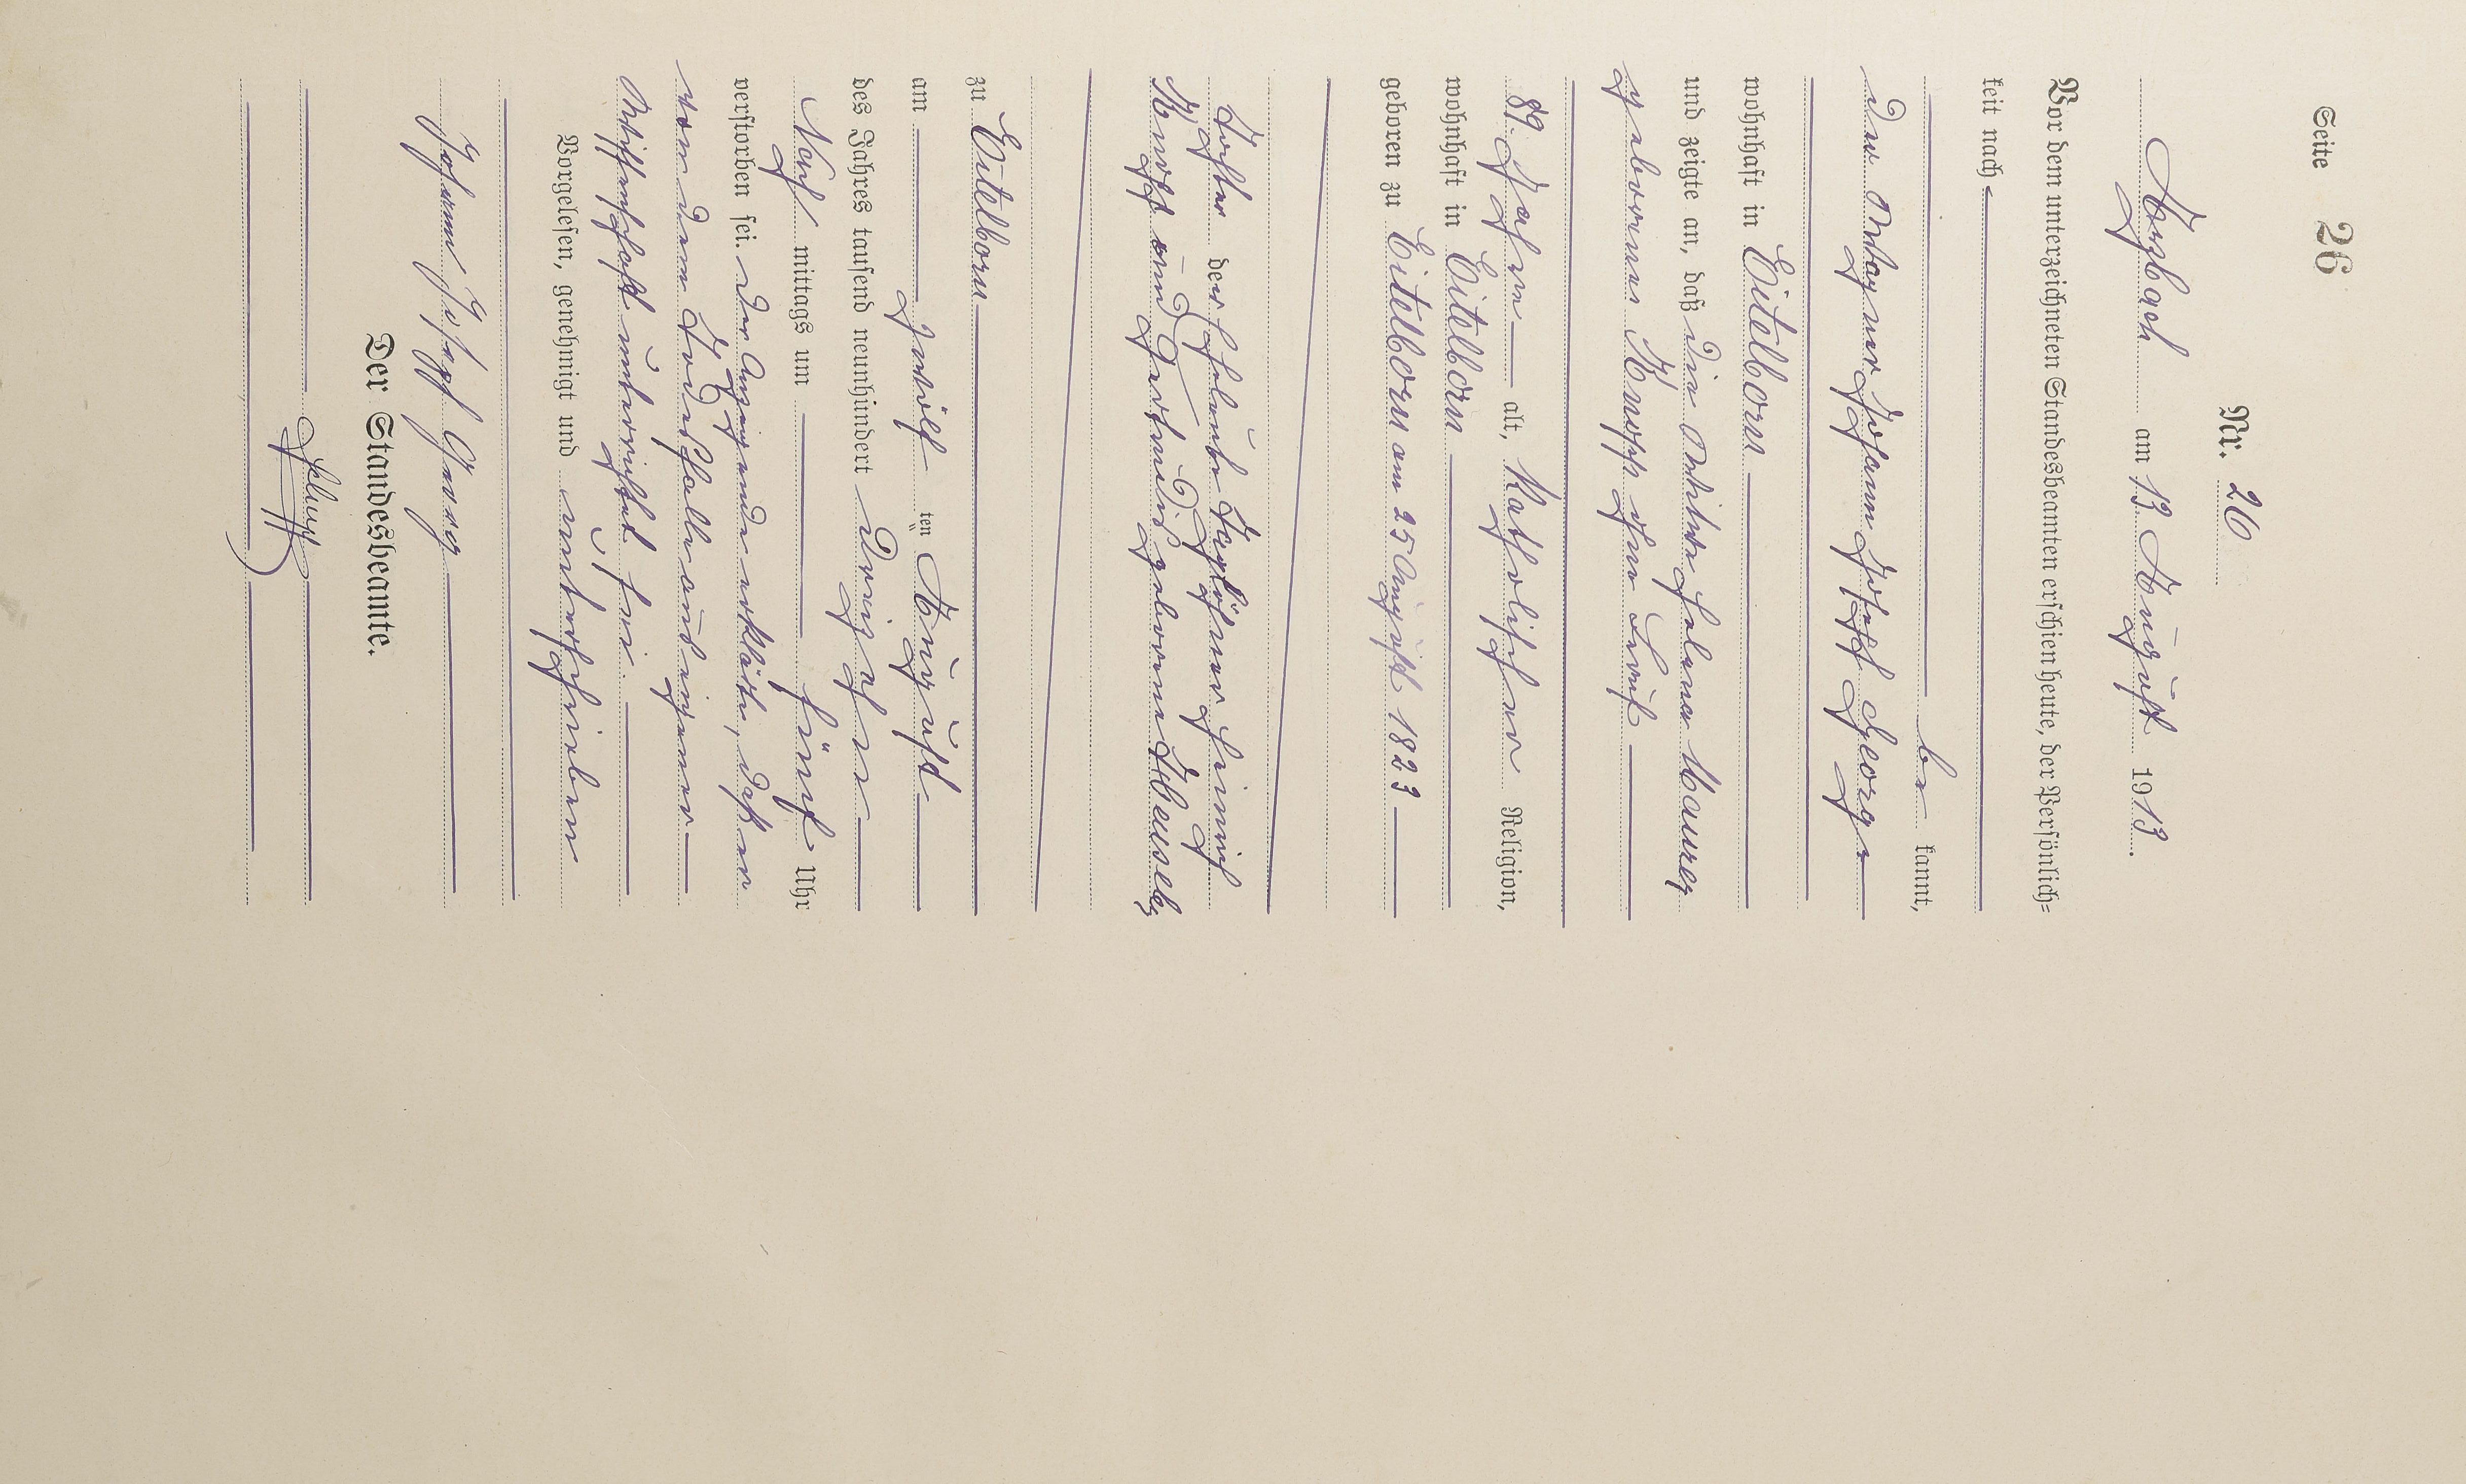 Seite 26
Nr. 26
Arzbach am 13 August 1913.
Vor dem unterzeichneten Standesbeamten erschien heute, der Persönlich=
keit nach
be kannt,
der Wagner Johann Josef George
wohnhaft in Eitelborn
und zeigte an, daß die Witwe Helena Maurer
geborene Knopp ohne Beruf
89 Jahre alt, Katholischer Religion,
wohnhaft in Eitelborn
geboren zu Eitelborn am 25 August 1823
Tochter der Eheleute Tagelöhner
Knopp und Gertrud geborene
zu Eitelborn
am zwölf ten August
des Jahres tausend neunhundert dreizehn
Nach mittags um fünf Uhr
verstorben sei. Der Anzeigende erklärte, daß er
von dem Todesfalle aus eigener
Wissenschaft unterrichtet sei.
Vorgelesen, genehmigt und unterschrieben
Johann Josef Georg
Der Standesbeamte.